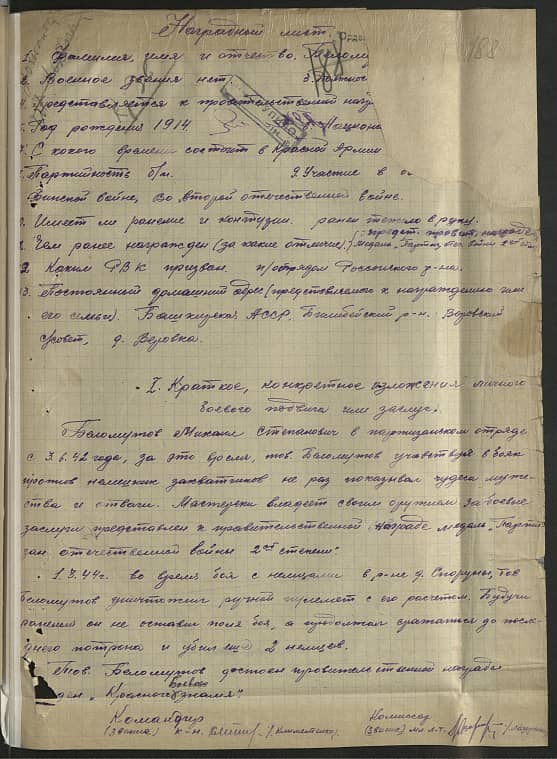 Наградный лист.
1. Фамилия, имя и отчество.
2. Военное звания нет. 3.
4. Представляется к правительственной наг
5. Год рождения 1914. Национа
7. С кокого времени состоит в Красной Армии
8. Партийность б/п. 9. Участие в
Финской войне, во второй отечественной войне.
Имеет ли ранение и контузии. ранен тяжело в руку.
Чем ранее награжден (за какие отличие).
Каким РВК призван. п/отрядом Россонского р-на.
3. Постоянный домашний адрес (представляемого к награждению или
его семьи). Башкирская АССР, р-н. Воровский
с/совет, д. Веровка.
I. Краткое, конкретное изложения личного
боевого подвига или заслуг.
Беломутов Михаил Степанович в партизанском отряде
с 3.6.42 года, за это время, тов. Беломутов участвуя в боях
против немецких захватчиков не раз показывал чудеса муже-
ства и отваги. Мастерски владеет своим оружием. За боевые
заслуги представлен к правительственной Награде медаль „Парти-
зан отечественной войны 2ой степени.
1.3.44г. во время боя с немцами в р-не д. Тов
Беломутов уничтожил ручной пулемет с его расчетом. Будучи
раненем он не оставил поля боя, а продолжал сражаться до послед-
днего потрона и убил еще 2 немцев.
Тов. Беломутов достоен провительственной награды
ден „Красного Боевого знамя".
Командир Комиссар
(Звания) к-н. (Звания) мл. л-т.